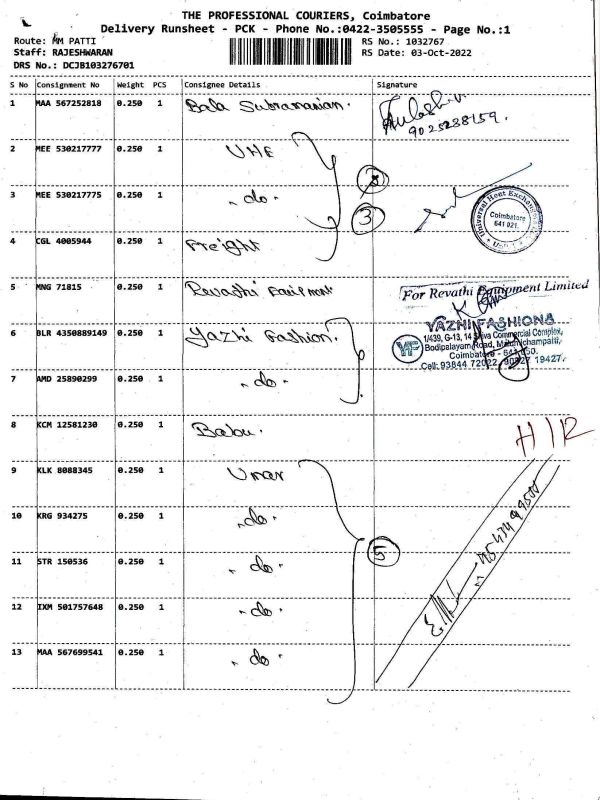 THE PROFESSIONAL COURIERS, Coimbatore
Delivery Runsheet - PCK - Phone No.:0422-3505555 - Page No.:1
Route: MM PATTI
RS No.: 1032767
Staff: RAJESHWARAN
RS Date: 03-Oct-2022
DRS No.: DCJB103276701
S No Consignment No Weight PCS Consignee Details Signature
1 MAA 567252818 0.250 1 Bala Subramanian.
9025238159.
2 MEE 530217777 0.250 1 UHE
3 MEE 530217775 0.250 1 " do "
3
Universal Heat Exchangers
Coimbatore
641 021.
4 CGL 4005944 0.250 1 Freight
5 MNG 71815 0.250 1 Revathi Equipment
For Revathi Equipment Limited
6 BLR 4350889149 0.250 1 Yazhi Fashion.
YAZHI FASHIONS
1/439, G-13, 14 Commercial Complex,
Bodipalayam Road,
Coimbatore - 641 050.
Cell: 93844 72022, 19427
7 AMD 25890299 0.250 1 " do "
8 KCM 12581230 0.250 1 Babu.
9 KLK 8088345 0.250 1 Umar
10 KRG 934275 0.250 1 " do "
11 STR 150536 0.250 1 " do "
5
12 IXM 501757648 0.250 1 " do "
13 MAA 567699541 0.250 1 " do "